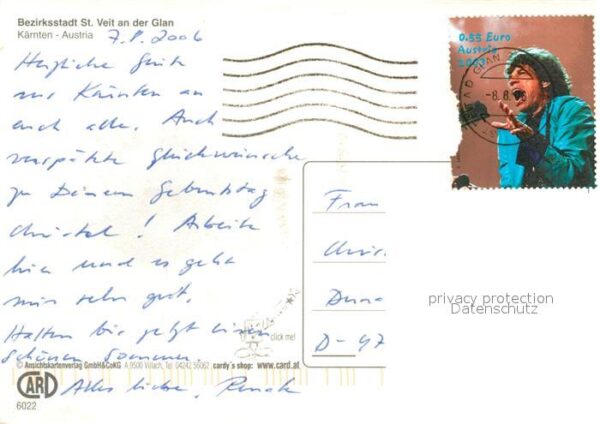 Bezirksstadt St. Veit an der Glan
Kärnten - Austria
7.8.2006
Herzliche Grüße
aus Kärnten an
euch alle. Auch
verspätete Glückwünsche
zu Deinem Geburtstag
Christel! Arbeite
hier und es geht
mir sehr gut.
Hatten bis jetzt einen
schönen Sommer.
Alles liebe, Renate
0.55 Euro
Austria
STADT GLAN
-8.8.
Frau
Chris
Dona
D-47
privacy protection
Datenschutz
click me!
© Ansichtskartenverlag GmbH&CoKG A 9500 Villach, Tel. 04242 56062 cardy's shop: www.card.at
CARD
6022